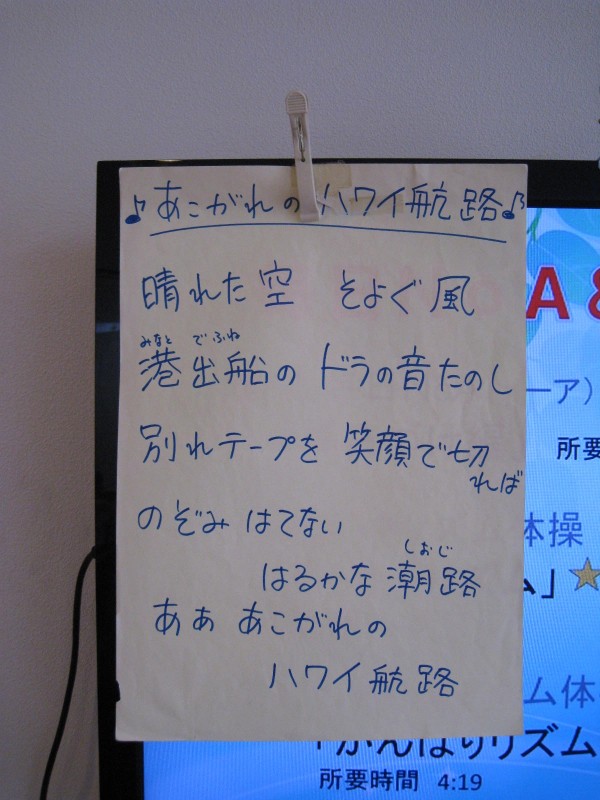 ♪あこがれのハワイ航路♪
晴れた空 そよぐ風
みなと でふね
港出船の ドラの音たのし
別れテープを 笑顔で切
れば
のぞみ はてない
しおじ
はるかな 潮路
ああ あこがれの
ハワイ航路
A &
ーア）
所要
体操
ム」
ム体
「がんばりリズム
所要時間 4:19